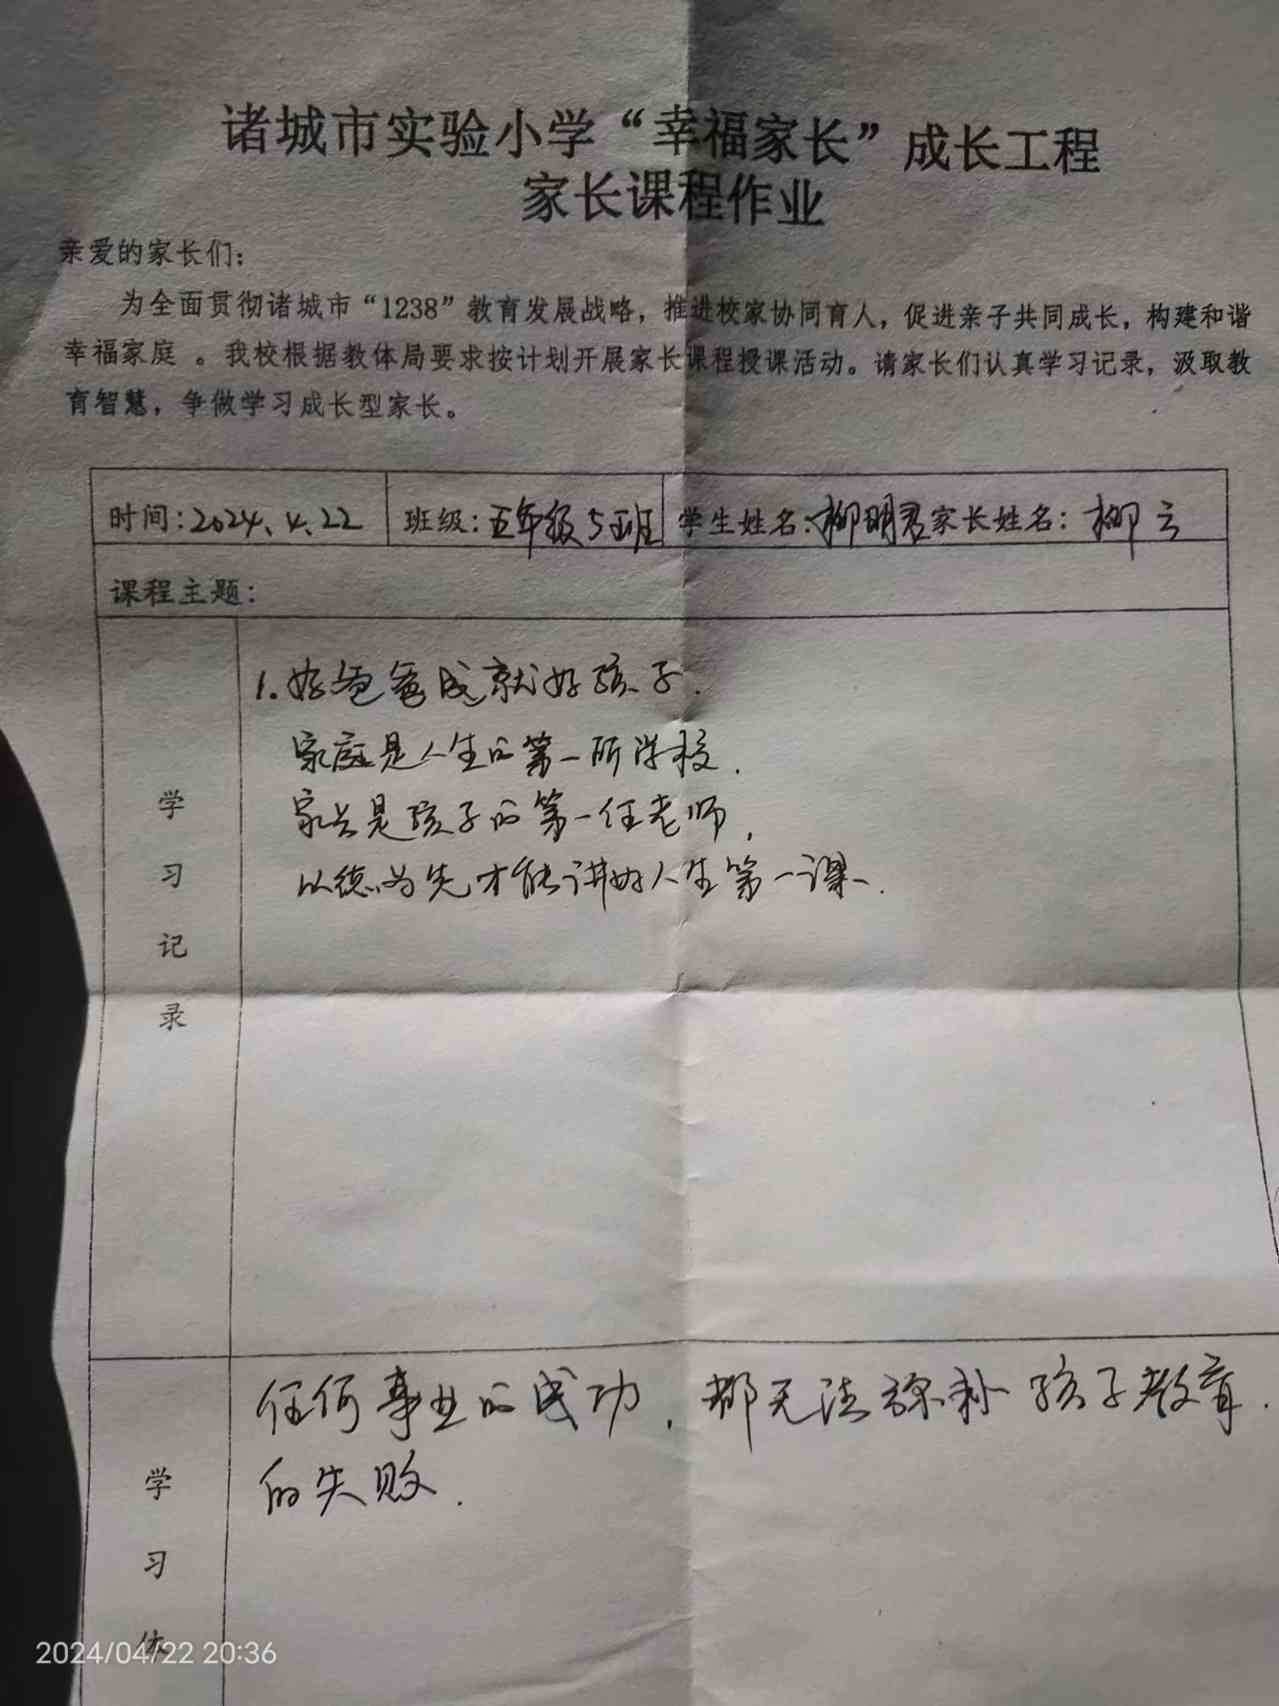 诸城市实验小学“幸福家长”成长工程
家长课程作业
亲爱的家长们：
为全面贯彻诸城市“1238”教育发展战略，推进校家协同育人，促进亲子共同成长，构建和谐
幸福家庭 。我校根据教体局要求按计划开展家长课程授课活动。请家长们认真学习记录，汲取教
育智慧，争做学习成长型家长。
时间：2024、4、22 班级：五年级5班 学生姓名：柳明君 家长姓名：柳云
课程主题：
学习记录
1.好爸爸成就好孩子.
家庭是人生的第一所学校.
家长是孩子的第一任老师,
以德为先才能讲好人生第一课.
学习体
任何事业的成功，都无法弥补孩子教育.
的失败.
2024/04/22 20:36